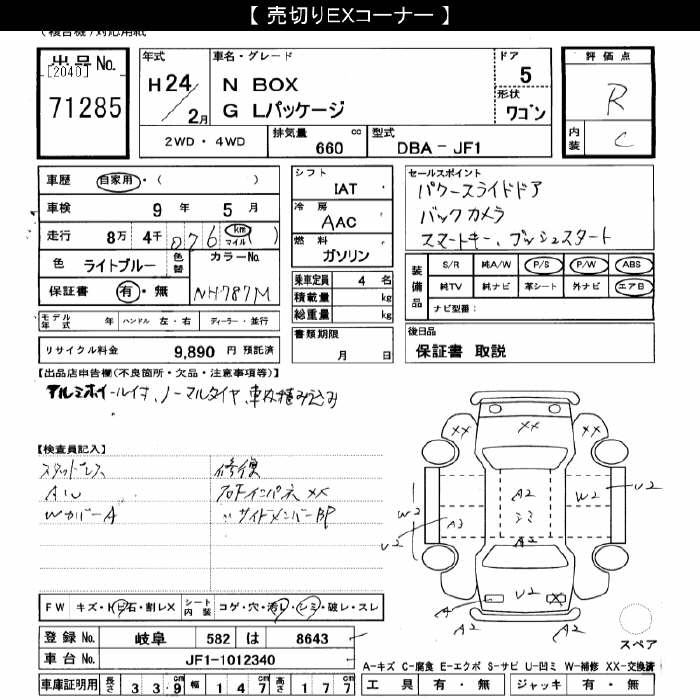 【 売切りEXコーナー 】
出品No.
[2040]
71285
年式
H24/2月
車名・グレード
N BOX
G Lパッケージ
ドア
5
形状
ワゴン
評価点
R
内装
C
2WD・4WD
排気量
660
cc
型式
DBA-JF1
車歴
自家用・( )
車検
9 年 5 月
走行
8万 4千 076 km マイル )
色
ライトブルー
色替
カラーNo.
NH787M
保証書
有・無
シフト
IAT
冷房
AAC
燃料
ガソリン
乗車定員
4 名
積載量
kg
総重量
kg
書類期限
月 日
セールスポイント
パワースライドドア
バックカメラ
スマートキー、プッシュスタート
装備品
S/R 純A/W P/S P/W ABS
純TV 純ナビ 革シート 外ナビ エアB
ナビ型番:
モデル年式 年 ハンドル 左・右 ディーラー・並行
リサイクル料金 9,890 円 預託済
後日品
保証書 取説
【出品店申告欄(不良箇所・欠品・注意事項等)】
アルミホイールイナ、ノーマルタイヤ、車内積み込み
【検査員記入】
スタットレス
AW
WカバーA
修復
右Fインパネ XX
〃サイドメンバーBP
XX
XX
XX
A2
シミ
A2
W2
U2
W2
U2
A3
U2
X
A
A2
A2
スペア
FW キズ・トビ石・割レX
シート内装 コゲ・穴・汚レ・シミ・破レ・スレ
登録No. 岐阜 582 は 8643
車台No. JF1-1012340
車庫証明用 長さ 3 3 9 cm 幅 1 4 7 cm 高さ 1 7 7 cm
A-キズ C-腐食 E-エクボ S-サビ U-凹ミ W-補修 XX-交換済
工具 有・無 ジャッキ 有・無